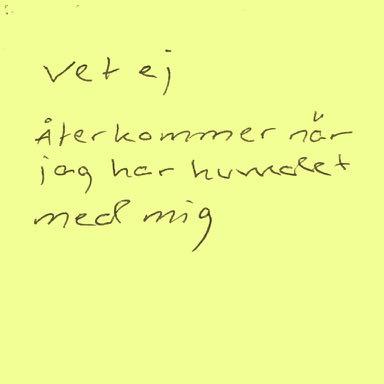 vet ej
Återkommer när
jag har humöret
med mig